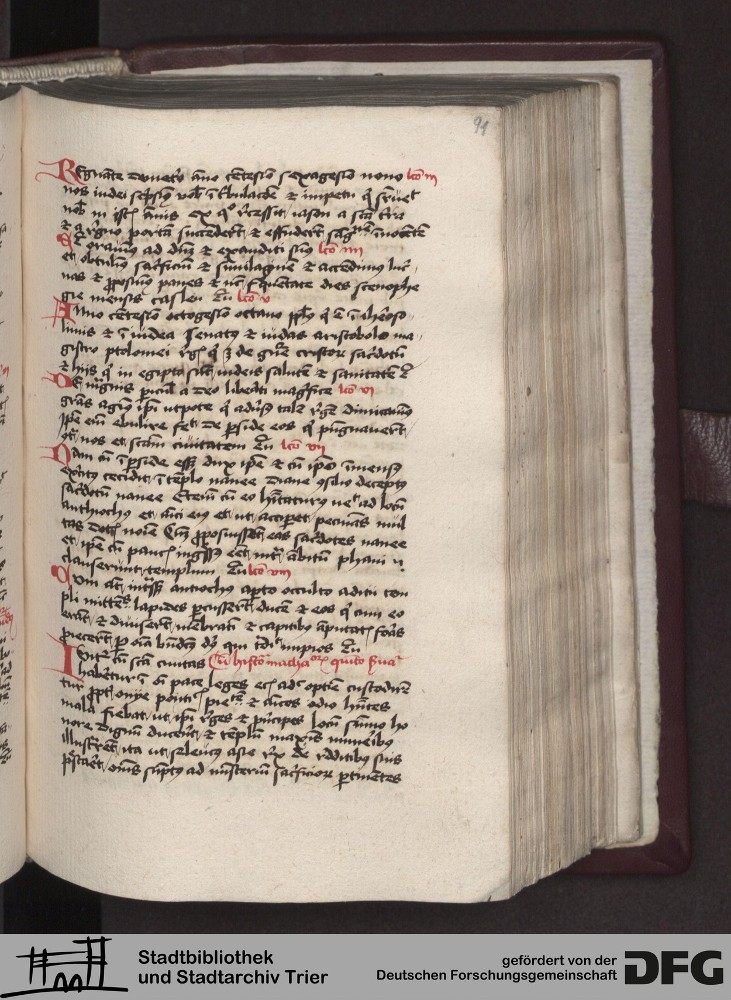 91
Regnante demetrio anno centesimo sexagesimo nono lco iii
nos iudei scripsimus vobis in tribulacione et impetu qui supervenit
nobis in istis annis ex quo recessit iason a sancta terra
et a regno portam succenderunt et effuderunt sanguinem innocentem
Et oravimus ad dominum et exauditi sumus lco iiii
et obtulimus sacrificium et similaginem et accendimus lucer
nas et proposuimus panes et nunc frequentate dies scenophe
gie mensis casleu Tu lco v
Anno centesimo octogesimo octavo populus qui est in iheroso
limis et in iudea senatus et iudas aristobolo ma
gistro ptolomei regis qui est de genere cristorum sacerdotum
et hiis qui in egipto sunt iudeis salutem et sanitatem
De magnis periculis a deo liberati magnifice lco vi
gracias agimus ipsi utpote qui adversus talem regem dimicavimus
ipse enim ebulire fecit de perside eos qui pugnaverunt
contra nos et sanctam civitatem Tu lco vii
Nam cum in perside esset dux ipse et cum ipso immensus
exercitus cecidit in templo nanee
sacerdotum nanee Etenim cum eo habitaturus venit ad locum
anthiochus et amici eius et ut acciperet pecunias mul
tas dotis nomine Cumque proposuissent eas sacerdotes nanee
et ipse cum paucis ingressus esset intra ambitum phani
clauserunt templum Tu lco viii
Cum autem intrasset antiochus aperto occulto aditu tem
pli mittentes lapides percusserunt ducem et eos qui cum eo
erant et diviserunt membratim et capitibus amputatis foras
proiecerunt per omnia benedictus deus qui tradidit impios Tu
Igitur cum sancta civitas
habitaretur in omni pace leges eciam adhuc optime custodiren
tur propter onye pontificis pietatem et animos odio habentes
mala fiebat ut ipsi reges et principes locum summo ho
nore dignum ducerent et templum maximis muneribus
illustrarent ita ut seleucus asie rex de redditibus suis
prestaret omnes sumptus ad ministerium sacrificiorum pertinentes
Stadtbibliothek
und Stadtarchiv Trier
gefördert von der
Deutschen Forschungsgemeinschaft
DFG